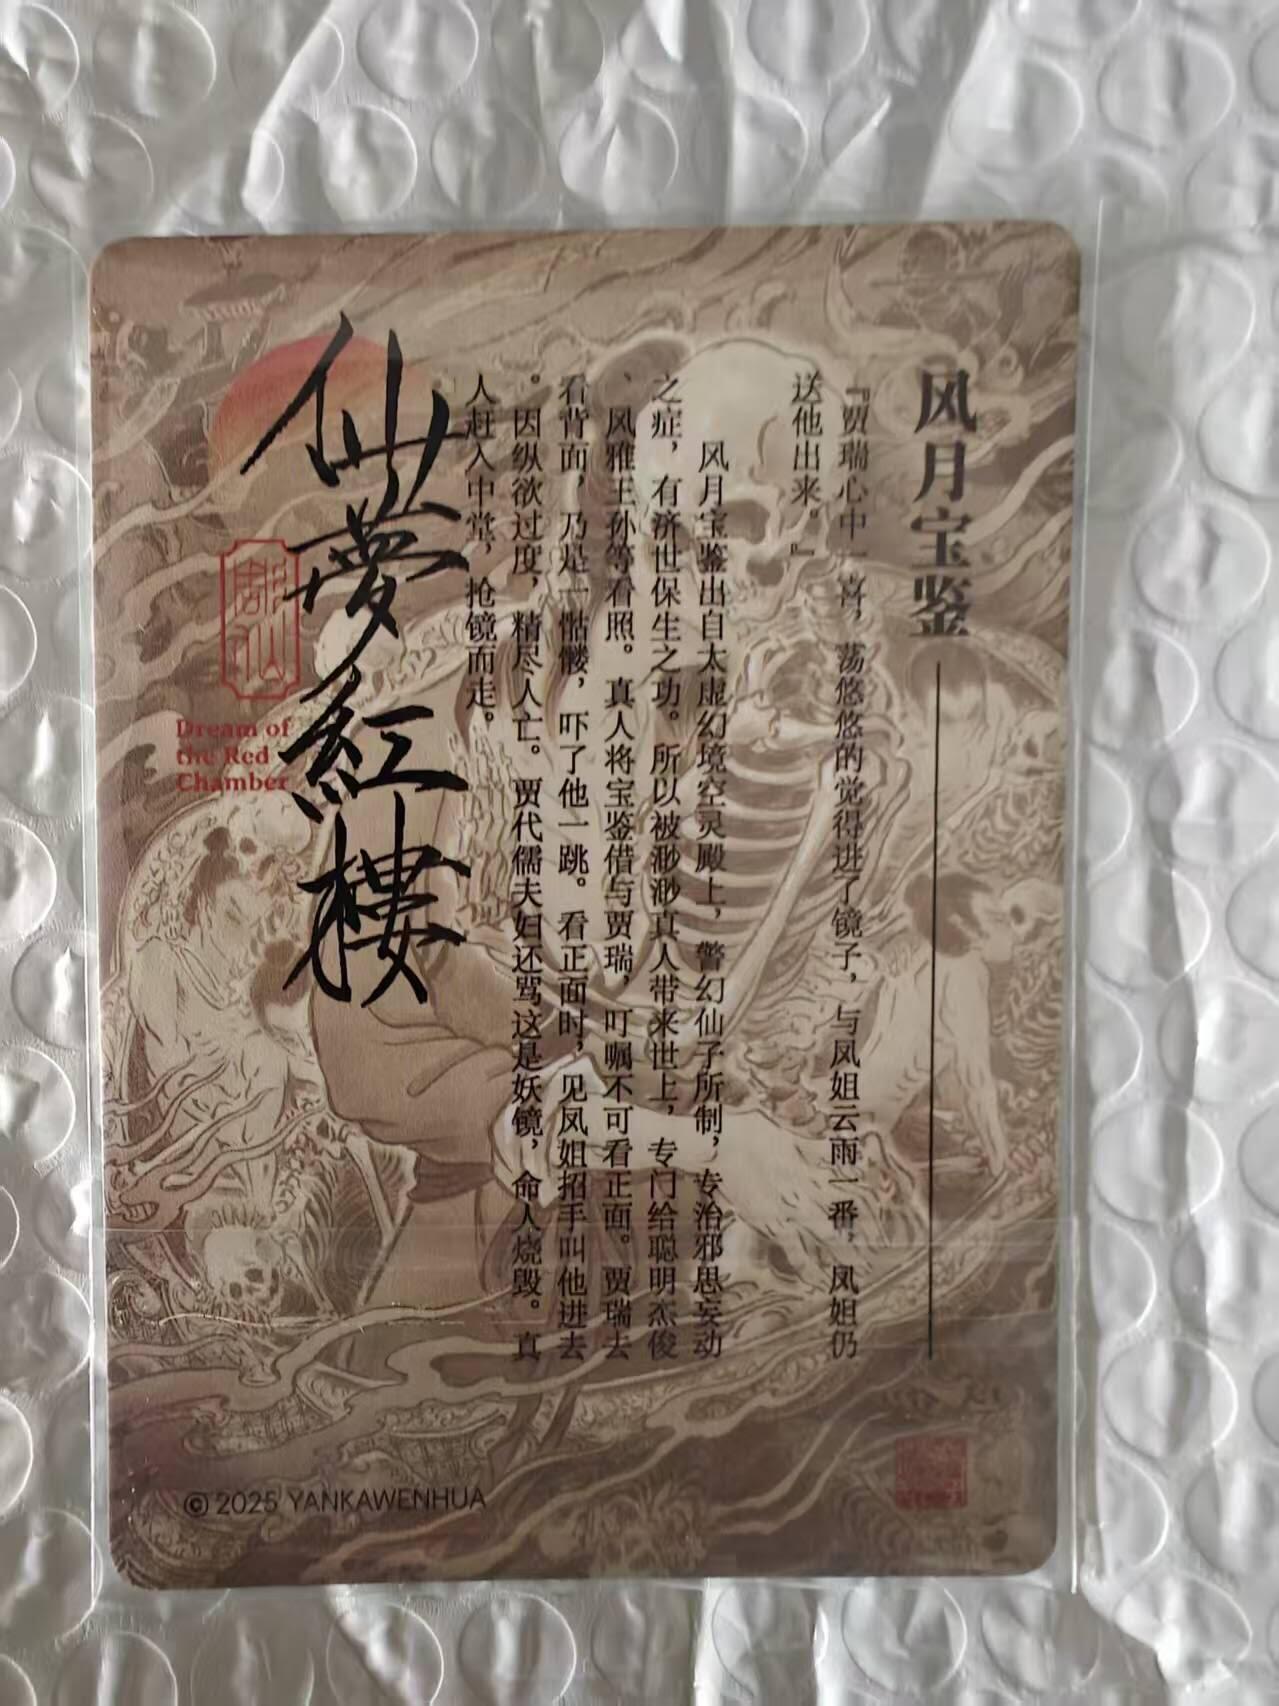 风月宝鉴
『贾瑞心中一喜，荡悠悠的觉得进了镜子，与凤姐云雨一番，凤姐仍
送他出来。』
风月宝鉴出自太虚幻境空灵殿上，警幻仙子所制，专治邪思妄动
之症，有济世保生之功。所以被渺渺真人带来世上，专门给聪明杰俊
、风雅王孙等看照。真人将宝鉴借与贾瑞，叮嘱不可看正面。贾瑞去
看背面，乃是一骷髅，吓了他一跳。看正面时，见凤姐招手叫他进去
。因纵欲过度，精尽人亡。贾代儒夫妇还骂这是妖镜，命人烧毁。真
人赶入中堂，抢镜而走。
仙夢紅樓
Dream of
the Red
Chamber
© 2025 YANKAWENHUA